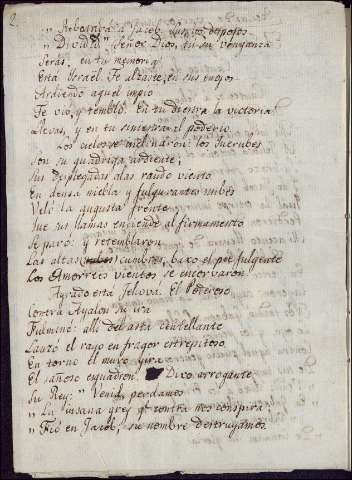 2
" Arbolaba á Jacob,
" Dividió" Señor Dios, tu su venganza
Seras, en tu memoria
Está Israel. Te alzaste, en sus enojos
Ardiendo aquel impio
Te vió, y tembló. En tu diestra la victoria
Llevas, y en tu siniestra el poderio
Los cielos se inclinaron: los Querubes
Son su quadriga ardiente;
Sus desplegadas alas raudo viento
En densa niebla y fulgurantes nubes
Veló la augusta frente
Que sus llamas enciende al firmamento
Se paró: y retemblaron
Las altas cumbres, baxo el pie fulgente
Los Amorreos vientos se encorvaron
Ayrado está Jehová. El Poderoso
Contra Ayalon su ira
Fulminó: alli del asta centellante
Lanzó el rayo en fragor estrepitoso
En torno el muro gira
El sañoso esquadron. Dixo arrogante
Su Rey: " Venid, perdamos
" La insana grey q.e contra nos conspira:
" Fió en Jacob, su nombre destruyamos